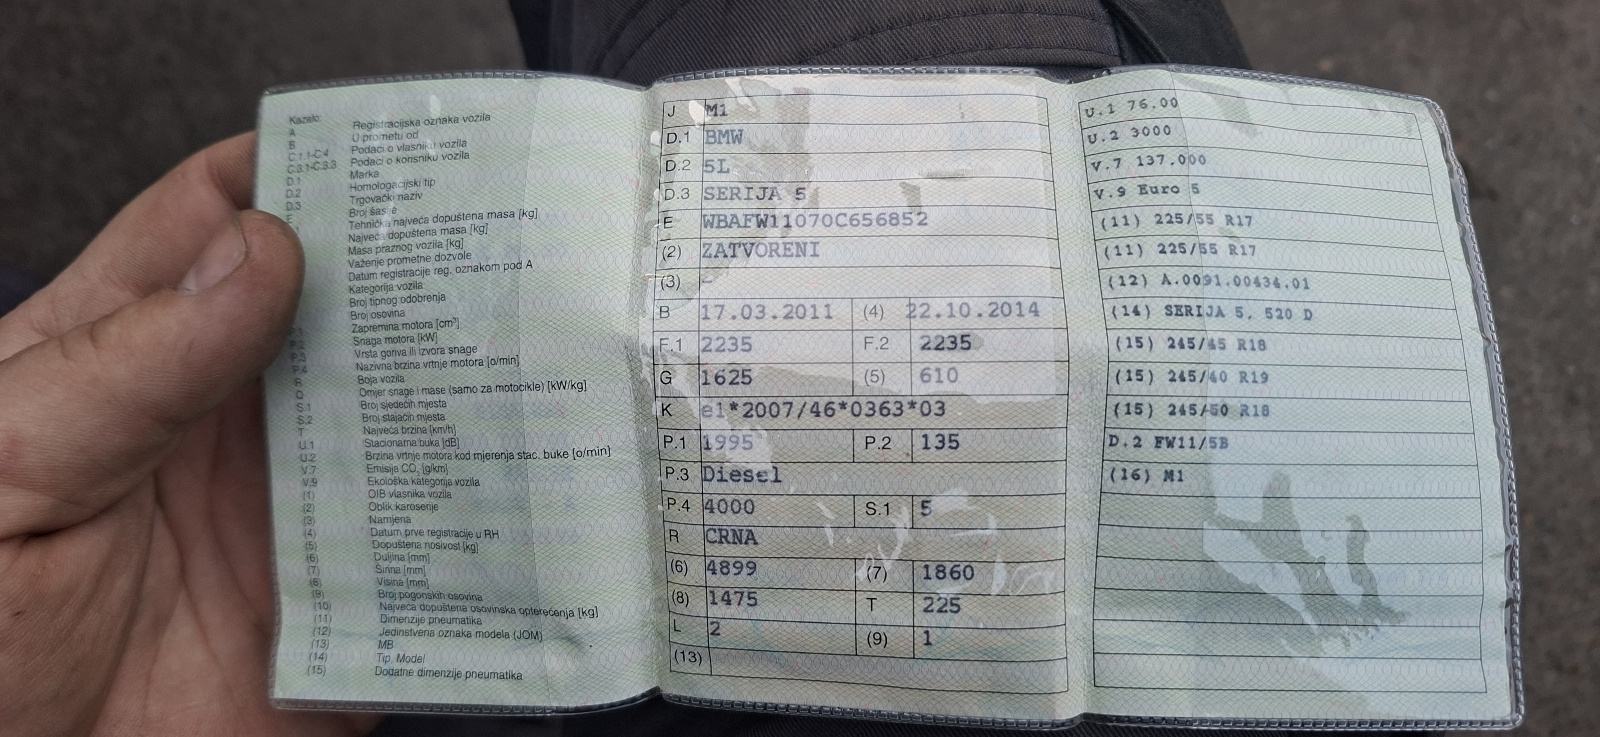 Kazalo:
A Registracijska oznaka vozila
B U prometu od
C.1.1-C.4 Podaci o vlasniku vozila
C.3.1-C.3.3 Podaci o korisniku vozila
D.1 Marka
D.2 Homologacijski tip
D.3 Trgovački naziv
E Broj šasije
Tehnička najveća dopuštena masa [kg]
Najveća dopuštena masa [kg]
Masa praznog vozila [kg]
Važenje prometne dozvole
Datum registracije reg. oznakom pod A
Kategorija vozila
Broj tipnog odobrenja
Broj osovina
P.1 Zapremina motora [cm³]
P.2 Snaga motora [kW]
P.3 Vrsta goriva ili izvora snage
P.4 Nazivna brzina vrtnje motora [o/min]
R Boja vozila
Q Omjer snage i mase (samo za motocikle) [kW/kg]
S.1 Broj sjedećih mjesta
S.2 Broj stajaćih mjesta
T Najveća brzina [km/h]
U.1 Stacionarna buka [dB]
U.2 Brzina vrtnje motora kod mjerenja stac. buke [o/min]
V.7 Emisija CO₂ [g/km]
V.9 Ekološka kategorija vozila
(1) OIB vlasnika vozila
(2) Oblik karoserije
(3) Namjena
(4) Datum prve registracije u RH
(5) Dopuštena nosivost [kg]
(6) Duljina [mm]
(7) Širina [mm]
(8) Visina [mm]
(9) Broj pogonskih osovina
(10) Najveća dopuštena osovinska opterećenja [kg]
(11) Dimenzije pneumatika
(12) Jedinstvena oznaka modela (JOM)
(13) MB
(14) Tip, Model
(15) Dodatne dimenzije pneumatika
J M1
D.1 BMW
D.2 5L
D.3 SERIJA 5
E WBAFW11070C656852
(2) ZATVORENI
(3) -
B 17.03.2011 (4) 22.10.2014
F.1 2235 F.2 2235
G 1625 (5) 610
K e1*2007/46*0363*03
P.1 1995 P.2 135
P.3 Diesel
P.4 4000 S.1 5
R CRNA
(6) 4899 (7) 1860
(8) 1475 T 225
L 2 (9) 1
(13)
U.1 76.00
U.2 3000
V.7 137.000
V.9 Euro 5
(11) 225/55 R17
(11) 225/55 R17
(12) A.0091.00434.01
(14) SERIJA 5, 520 D
(15) 245/45 R18
(15) 245/40 R19
(15) 245/50 R18
D.2 FW11/5B
(16) M1